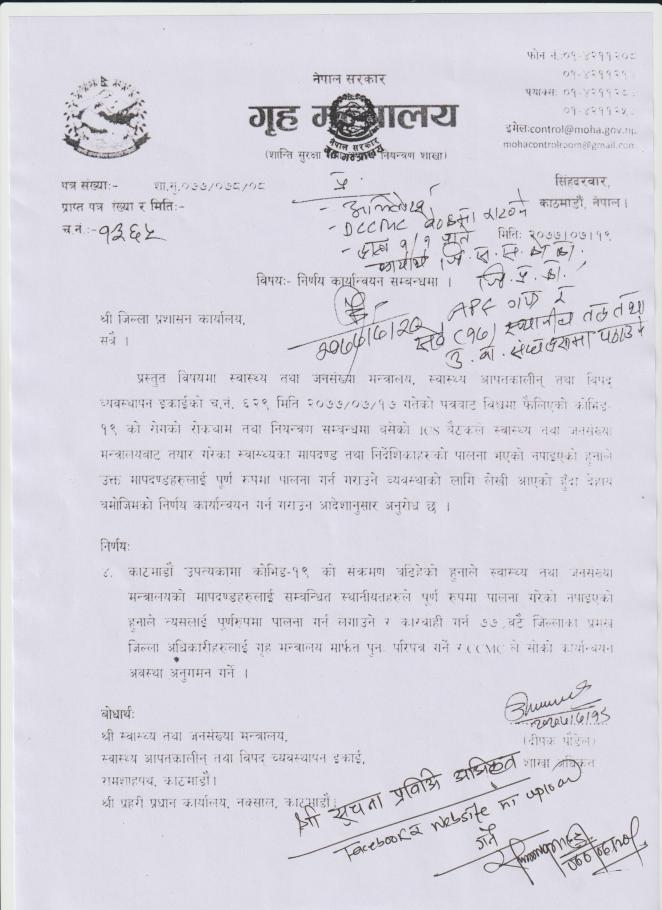 फोन नं.:०१-४२११२०८
०१-४२११२
फ्याक्सः ०१-४२११२
०१-४२११२
इमेल:control@moha.gov.np
mohacontrolroom@gmail.com
नेपाल सरकार
गृह मन्त्रालय
नेपाल सरकार
गृह मन्त्रालय
(शान्ति सुरक्षा नियन्त्रण शाखा)
सिंहदरवार,
काठमाडौं, नेपाल।
पत्र संख्याः- शा.सु.०७७/०७८/०८
प्राप्त पत्र संख्या र मितिः-
च.नं.:-१३६५
मितिः २०७७/०७/१९
प्र.
- DCCMC बैठकमा राख्ने
विषयः- निर्णय कार्यान्वयन सम्बन्धमा ।
जि. प्र. का.,
APF
स्थानीय तह तथा
श्री जिल्ला प्रशासन कार्यालय,
सवै ।
प्रस्तुत विषयमा स्वास्थ्य तथा जनसंख्या मन्त्रालय, स्वास्थ्य आपतकालीन् तथा विपद्
व्यवस्थापन इकाईको च.नं. ६२९ मिति २०७७/०७/१७ गतेको पत्रवाट विश्वमा फैलिएको कोभिड-
१९ को रोगको रोकथाम तथा नियन्त्रण सम्बन्धमा बसेको ICS बैठकले स्वास्थ्य तथा जनसंख्या
मन्त्रालयबाट तयार गरेका स्वास्थ्यका मापदण्ड तथा निर्देशिकाहरुको पालना भएको नपाइएको हुनाले
उक्त मापदण्डहरुलाई पुर्ण रुपमा पालना गर्न गराउने व्यवस्थाको लागि लेखी आएको हुँदा देहाय
वमोजिमको निर्णय कार्यान्वयन गर्न गराउन आदेशानुसार अनुरोध छ ।
निर्णयः
४. काठमाडौं उपत्यकामा कोभिड-१९ को संक्रमण बढिरहेको हुनाले स्वास्थ्य तथा जनसंख्या
मन्त्रालयको मापदण्डहरुलाई सम्बन्धित स्थानीयतहरुले पूर्ण रुपमा पालना गरेको नपाइएको
हुनाले त्यसलाई पुर्णरुपमा पालना गर्न लगाउने र कारवाही गर्न ७७ वटै जिल्लाका प्रमुख
जिल्ला अधिकारीहरुलाई गृह मन्त्रालय मार्फत पुनः परिपत्र गर्ने र CCMC ले सोको कार्यान्वयन
अवस्था अनुगमन गर्ने ।
बोधार्थः
श्री स्वास्थ्य तथा जनसंख्या मन्त्रालय,
स्वास्थ्य आपतकालीन् तथा विपद् व्यवस्थापन इकाई,
रामशाहपथ, काठमाडौं।
श्री प्रहरी प्रधान कार्यालय, नक्साल, काठमाडौं।
(दीपक पौडेल)
शाखा अधिकृत
श्री सूचना प्रविधि अधिकृत
Facebook र website मा upload
गर्ने